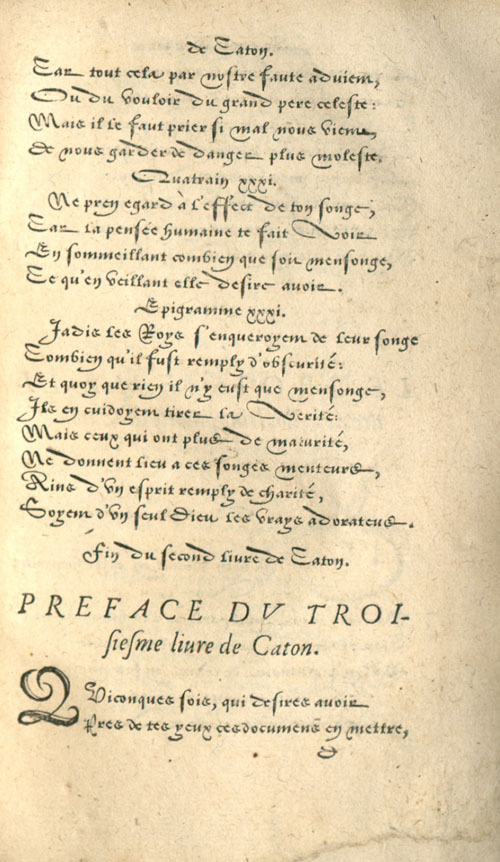 de Caton.
Car tout cela par nostre faute advient,
Ou du vouloir du grand pere celeste:
Mais il le faut prier si mal nous vient,
de nous garder de danger plus moleste.
Quatrain xxxi.
Ne pren egard à l'effect de ton songe,
Car la pensée humaine te fait Voir
En sommeillant combien que soit mensonge,
Ce qu'en veillant elle desire avoir.
Epigramme xxxi.
Jadis les Roys s'enqueroyent de leur songe
Combien qu'il fust remply d'obscurité:
Et quoy que rien il n'y eust que mensonge,
Ils en cuidoyent tirer la Verité:
Mais ceux qui ont plus de maturité,
Ne donnent lieu a ces songes menteurs,
Ains d'vn esprit remply de charité,
Soyent d'vn seul Dieu les vrays adorateus.
Fin du second livre de Caton.
PREFACE DV TROI-
siesme liure de Caton.
QViconques sois, qui desires avoir
Pres de tes yeux ces documens en mettre,